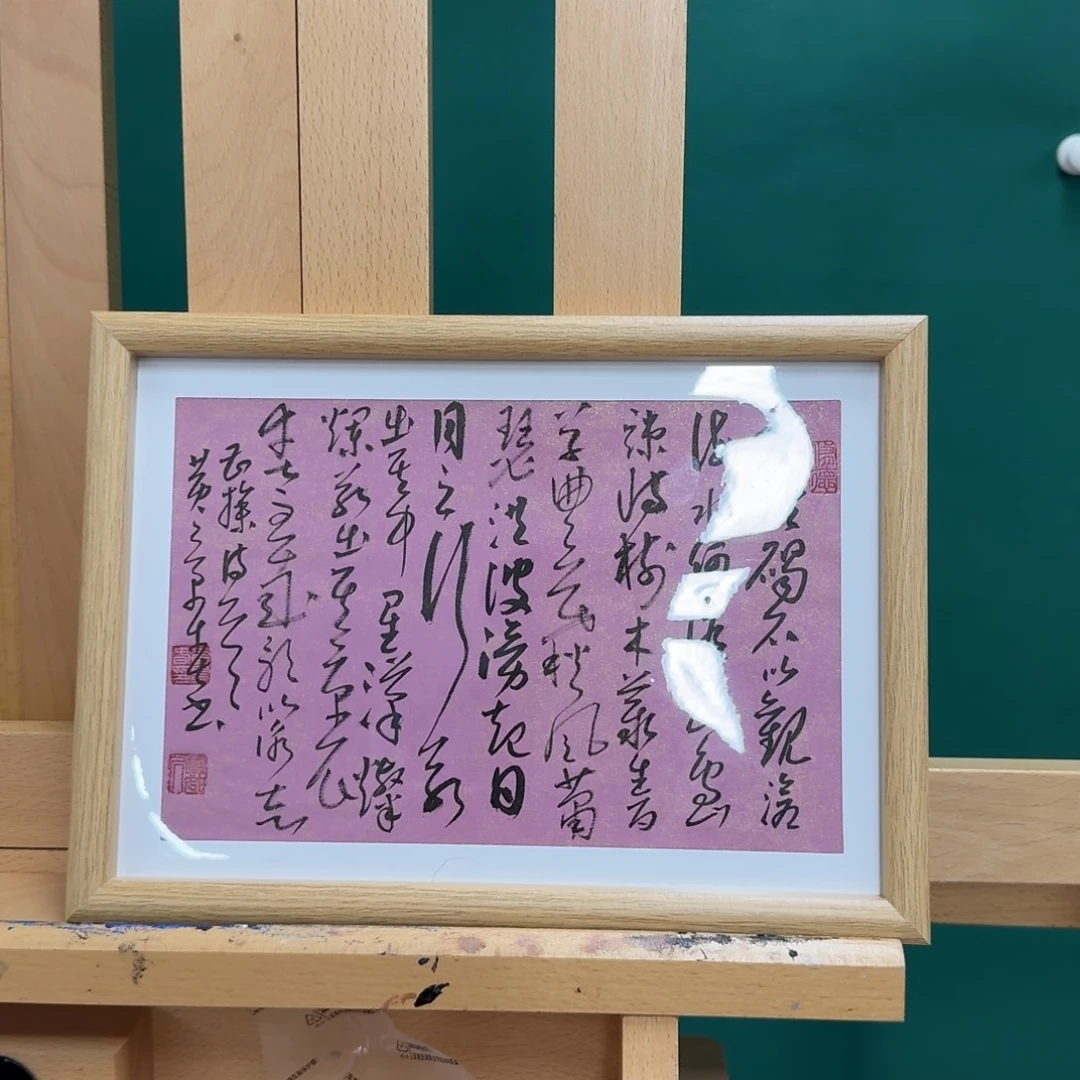 碣石以觀滄
海水何山島
竦峙樹木叢生百
草豐茂秋風蕭
瑟洪波湧起日
月之行若
出其中星漢燦
爛若出其裏
幸甚至哉歌以詠志
操詩
書